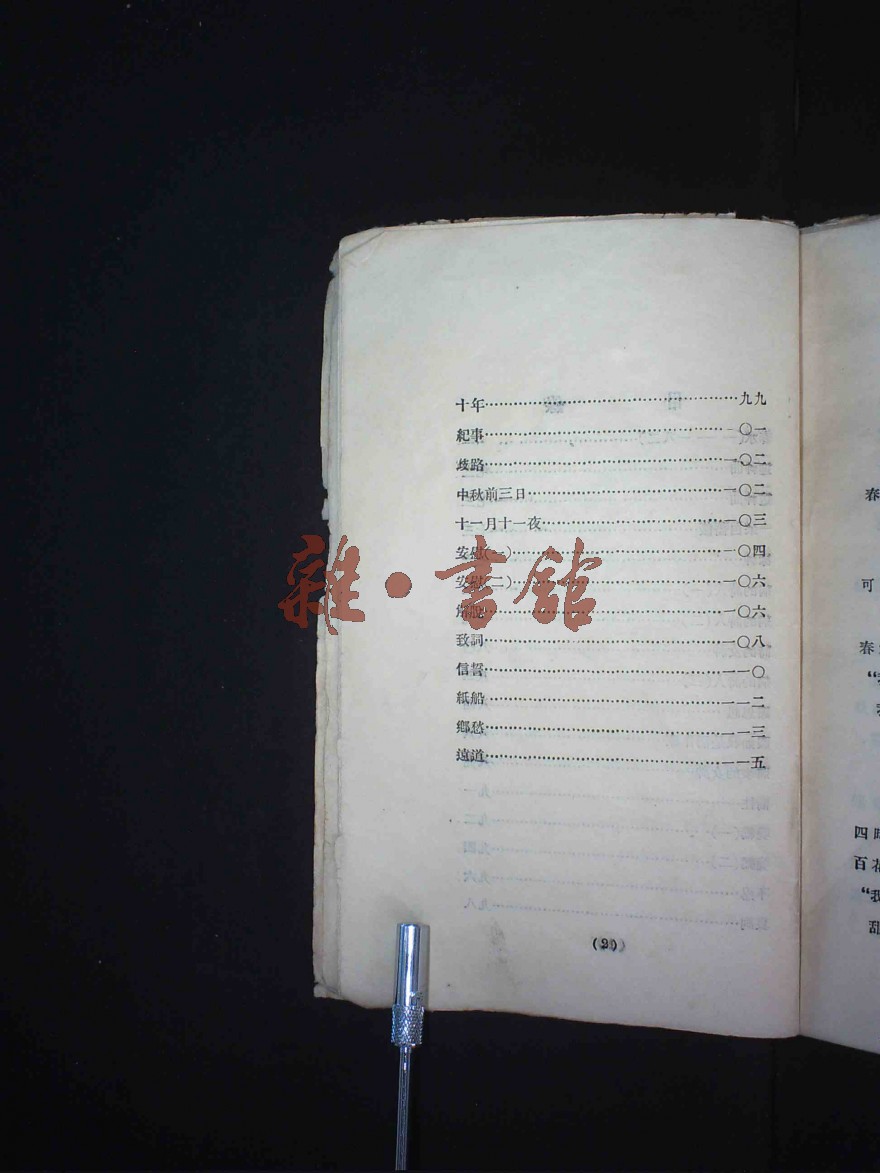 十年……九九
紀事……一〇一
歧路……一〇二
中秋前三日……一〇二
十一月十一夜……一〇三
安慰(一)……一〇四
安慰(二)……一〇六
解脫……一〇六
致詞……一〇八
信誓……一一〇
紙船……一一二
鄉愁……一一三
遠道……一一五
(2)
雜·書館
春
可
春
四
百花
“我
甜